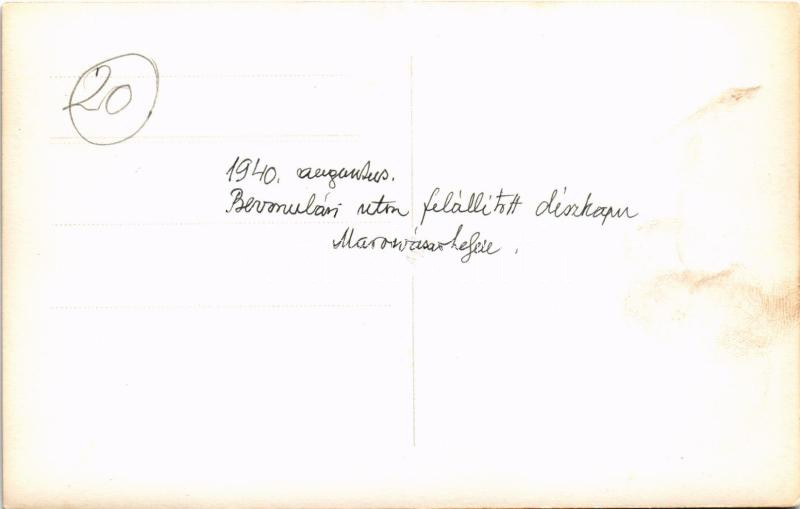 20
1940. augusztus.
Bevonulási uton felállitott díszkapu
Marosvásárhelyre.